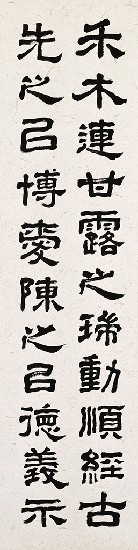 禾木連甘露之瑞動順經古
先之㠯博愛陳之㠯德義示